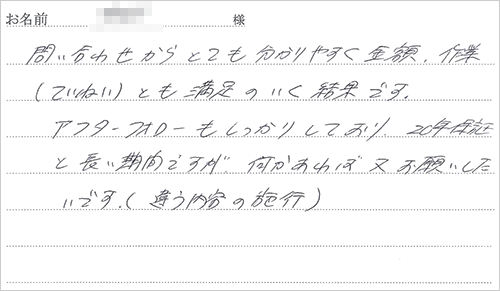 お名前 様
問い合わせからとても分かりやすく金額、作業
(ていねい)とも満足のいく結果です。
アフターフォローもしっかりしており、20年保証
と長い期間ですが、何かあれば又お願いした
いです。(違う内容の施行)